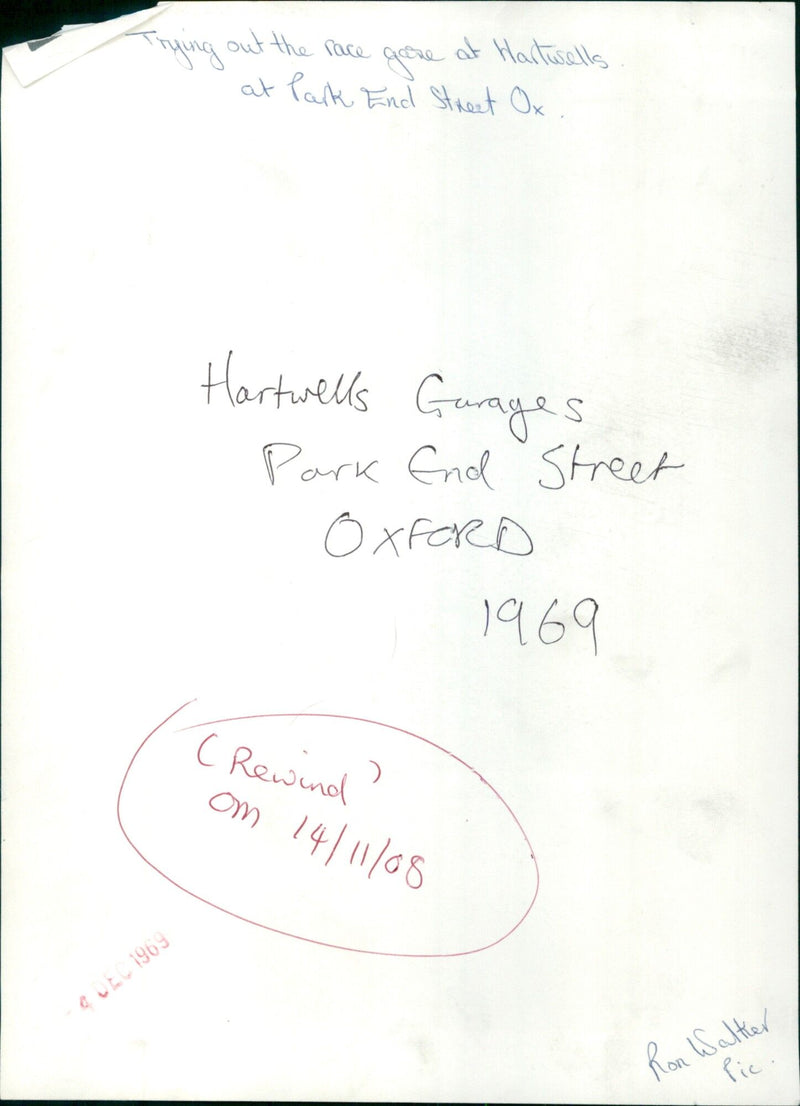 Trying out the race game at Hartwells
at Park End Street Ox.
Hartwells Garages
Park End Street
OXFORD
1969
(Rewind)
OM 14/11/08
4 DEC 1969
Ron Walker
Pic.